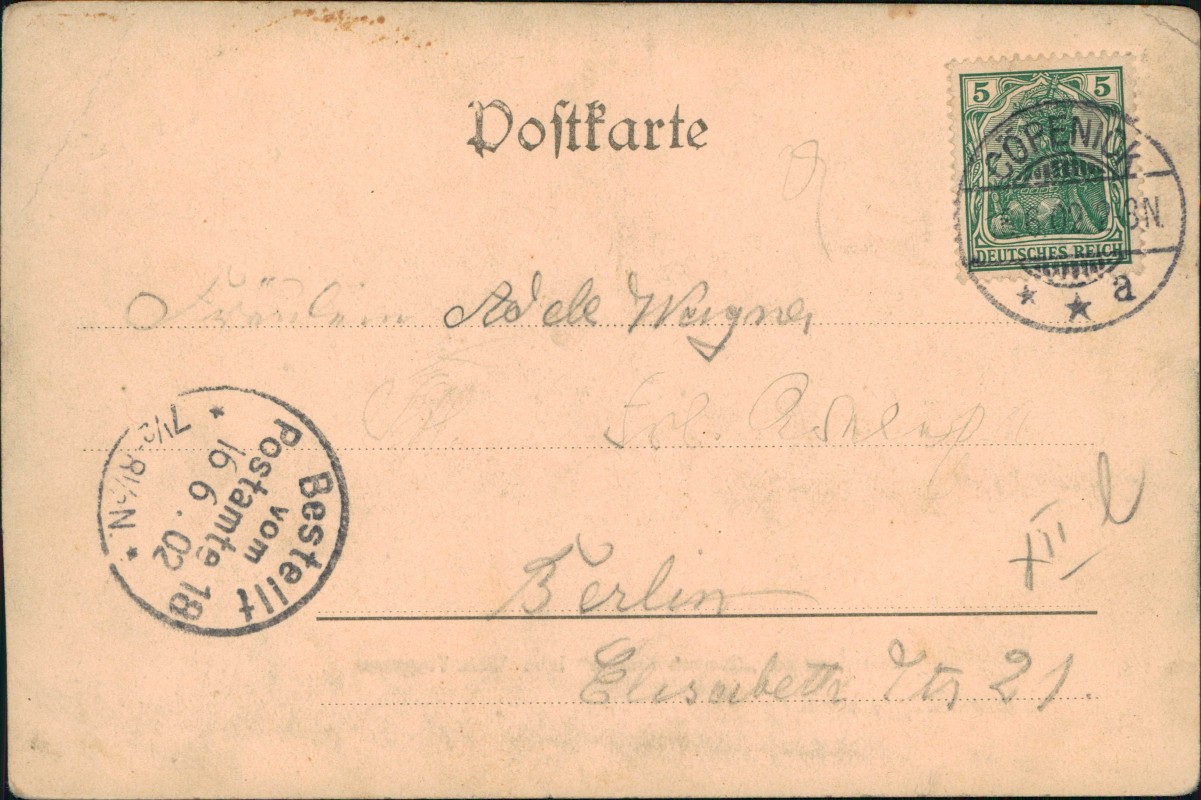 Postkarte
5 5
DEUTSCHES REICH
CÖPENICK
6.02 N.
* * a
Fräulein Adele Wagner
Berlin
Elisabeth Str 21.
XIII
Bestellt
vom
Postamte 18
16 6. 02
7½-8½N.